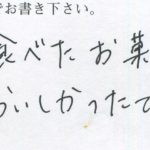 でお書き下さい。
食べたお菓
おいしかったで